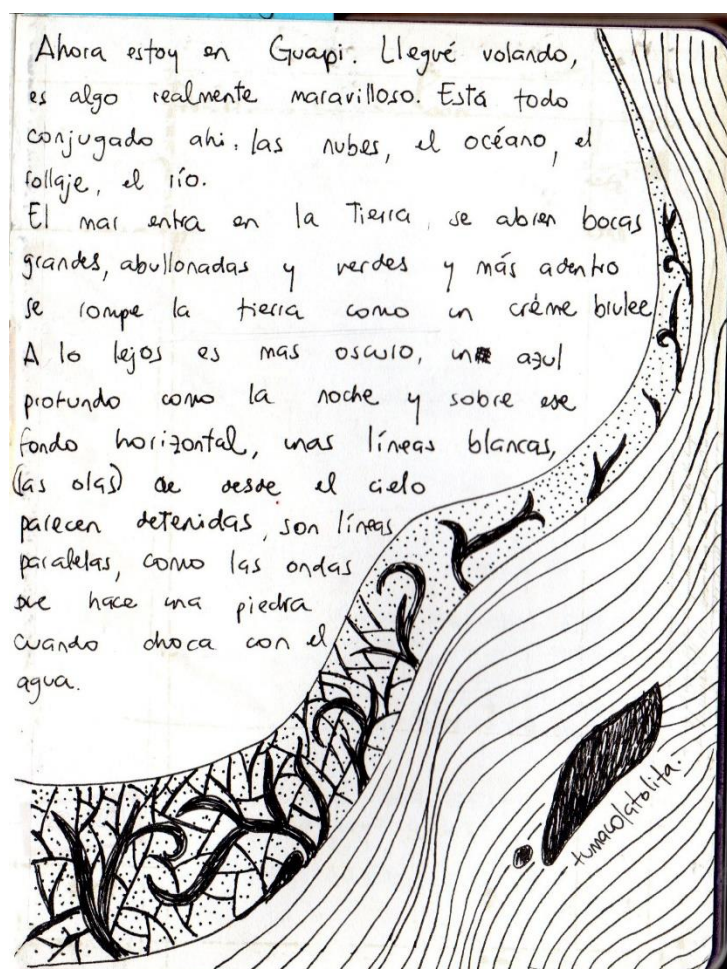 Ahora estoy en Guapi. Llegué volando,
es algo realmente maravilloso. Está todo
conjugado ahi, las nubes, el océano, el
follaje, el río.
El mar entra en la Tierra, se abren bocas
grandes, abullonadas y verdes y más adentro
se rompe la tierra como un créme brulee
A lo lejos es mas oscuro, un azul
profundo como la noche y sobre ese
fondo horizontal, unas líneas blancas,
(las olas) que desde el cielo
parecen detenidas, son líneas
paralelas, como las ondas
que hace una piedra
cuando choca con el
agua.
tumaco/latolita.